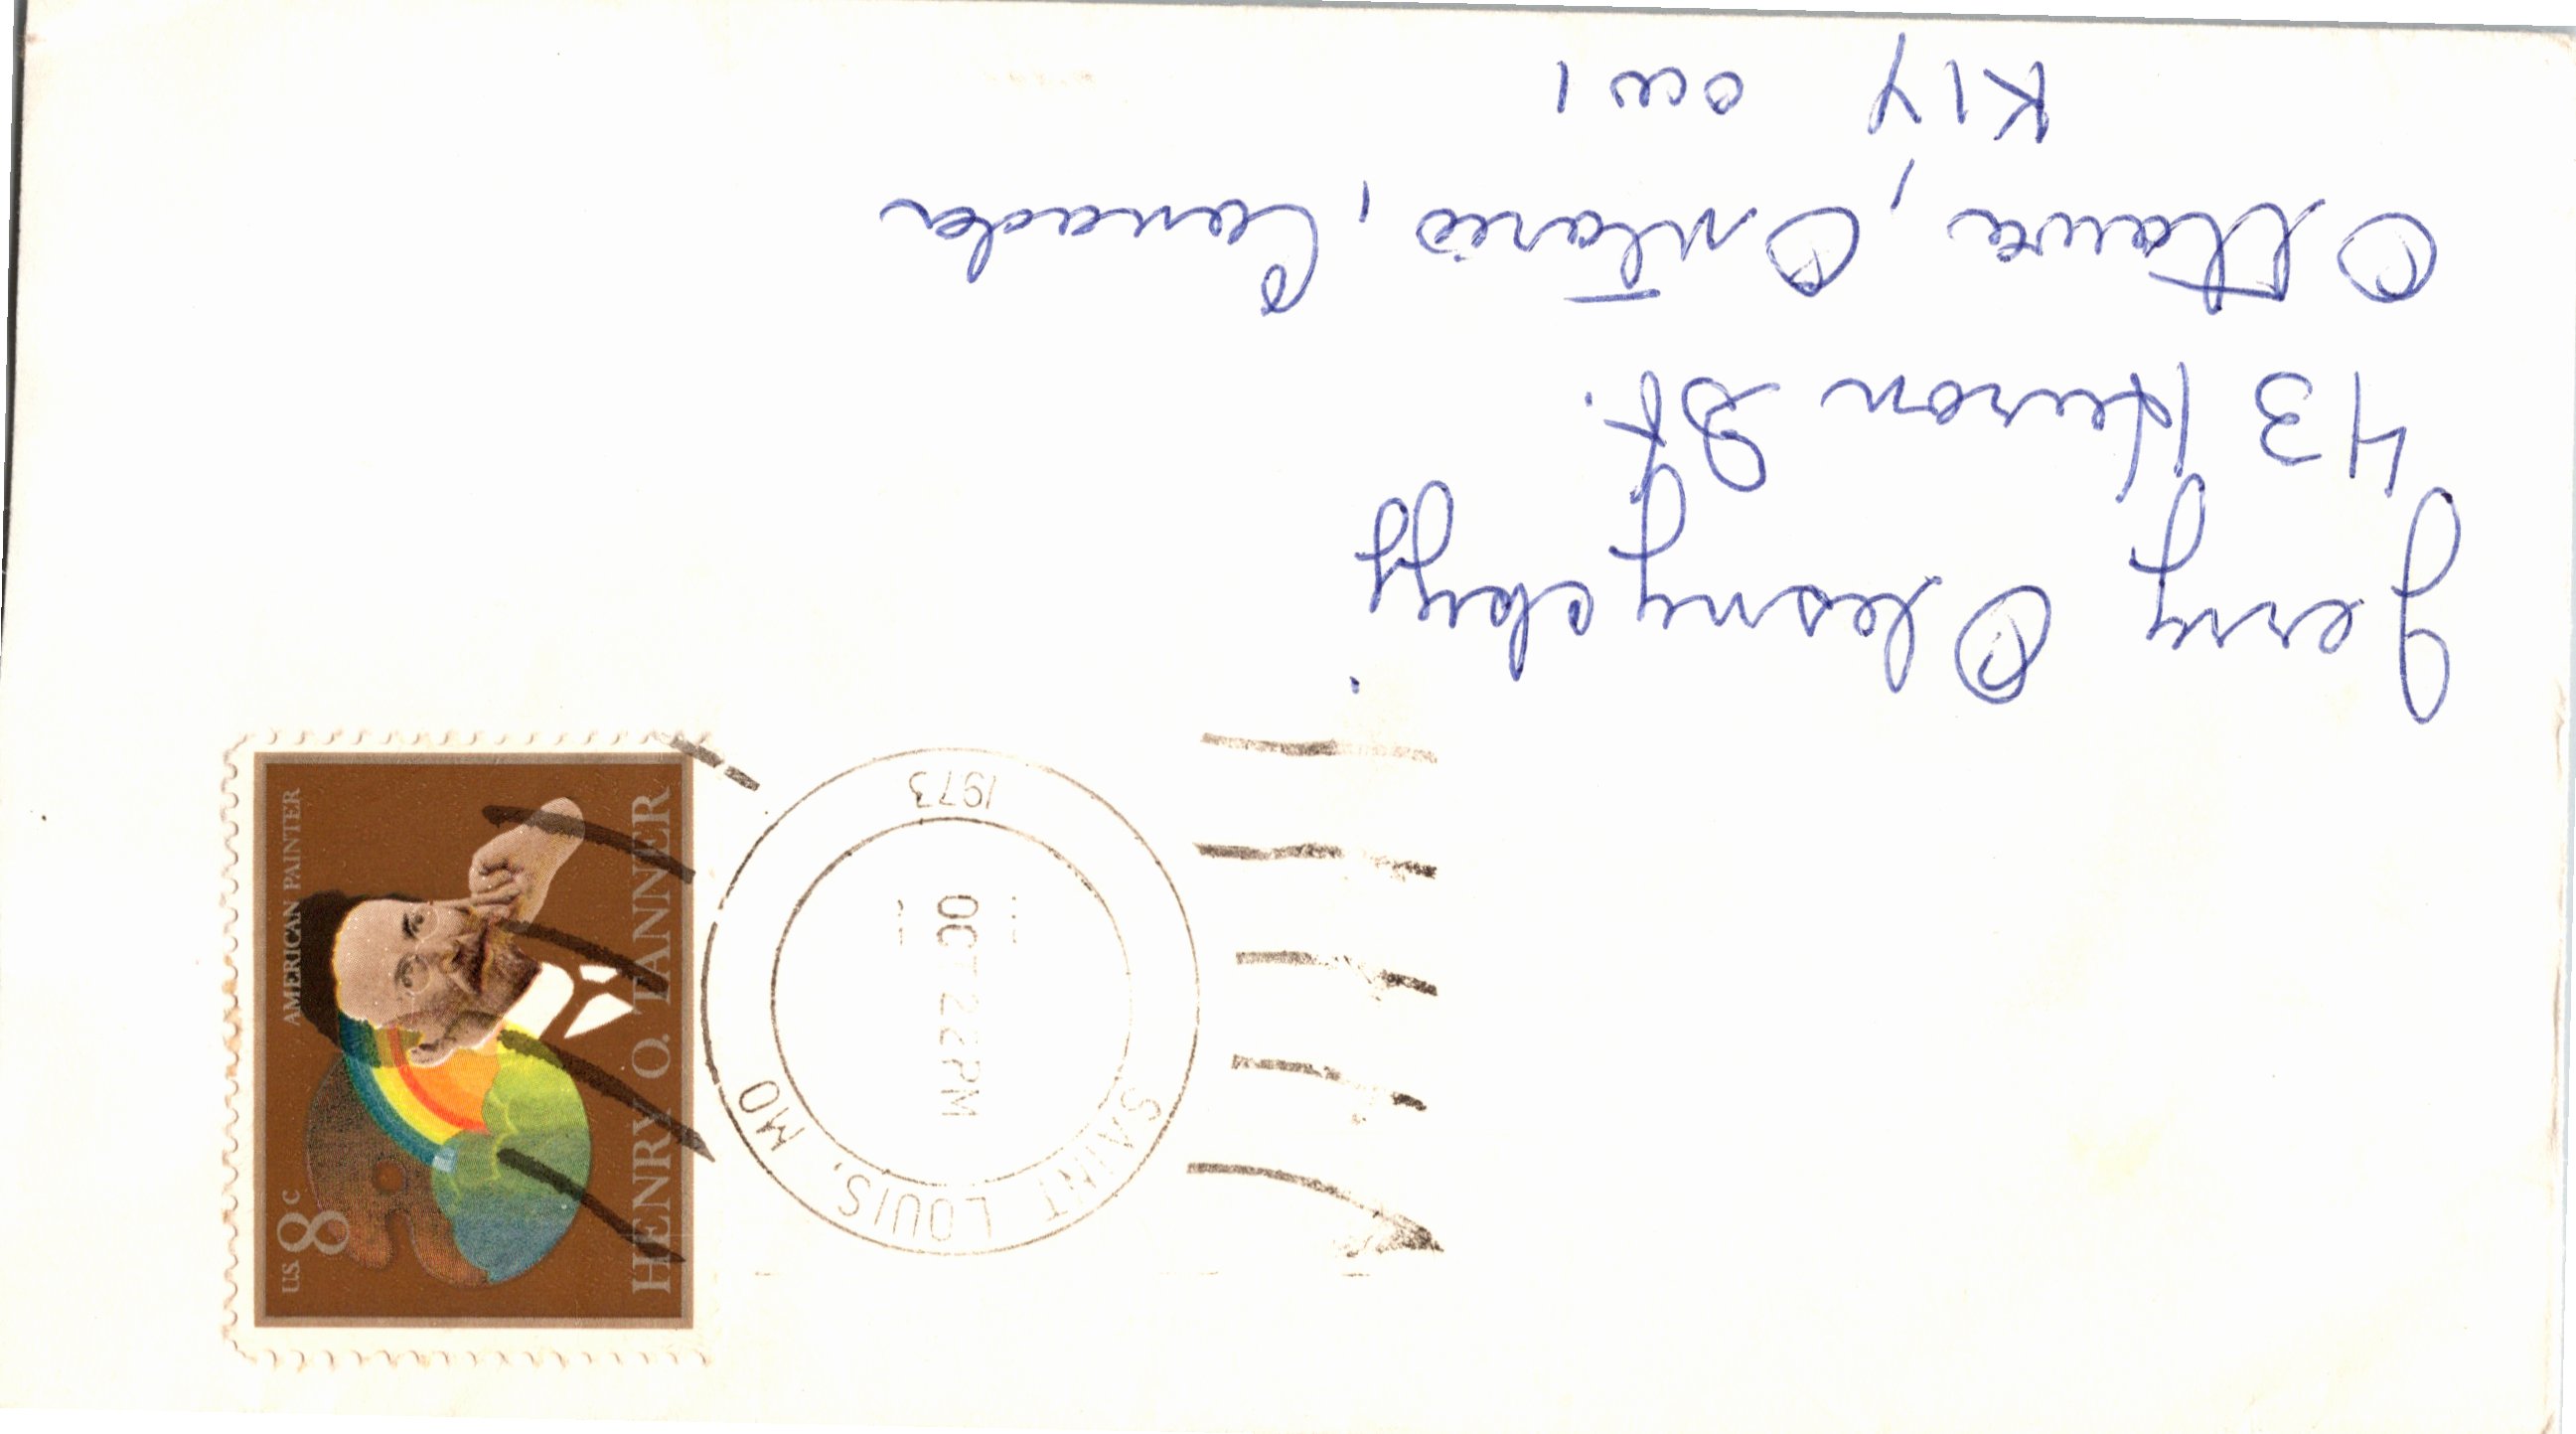 HENRY O. TANNER
AMERICAN PAINTER
U.S. 8c
SAINT LOUIS, MO
OCT 22 PM
1973
Jerry
43 Huron St.
Ottawa, Ontario, Canada
K1Y 0W1